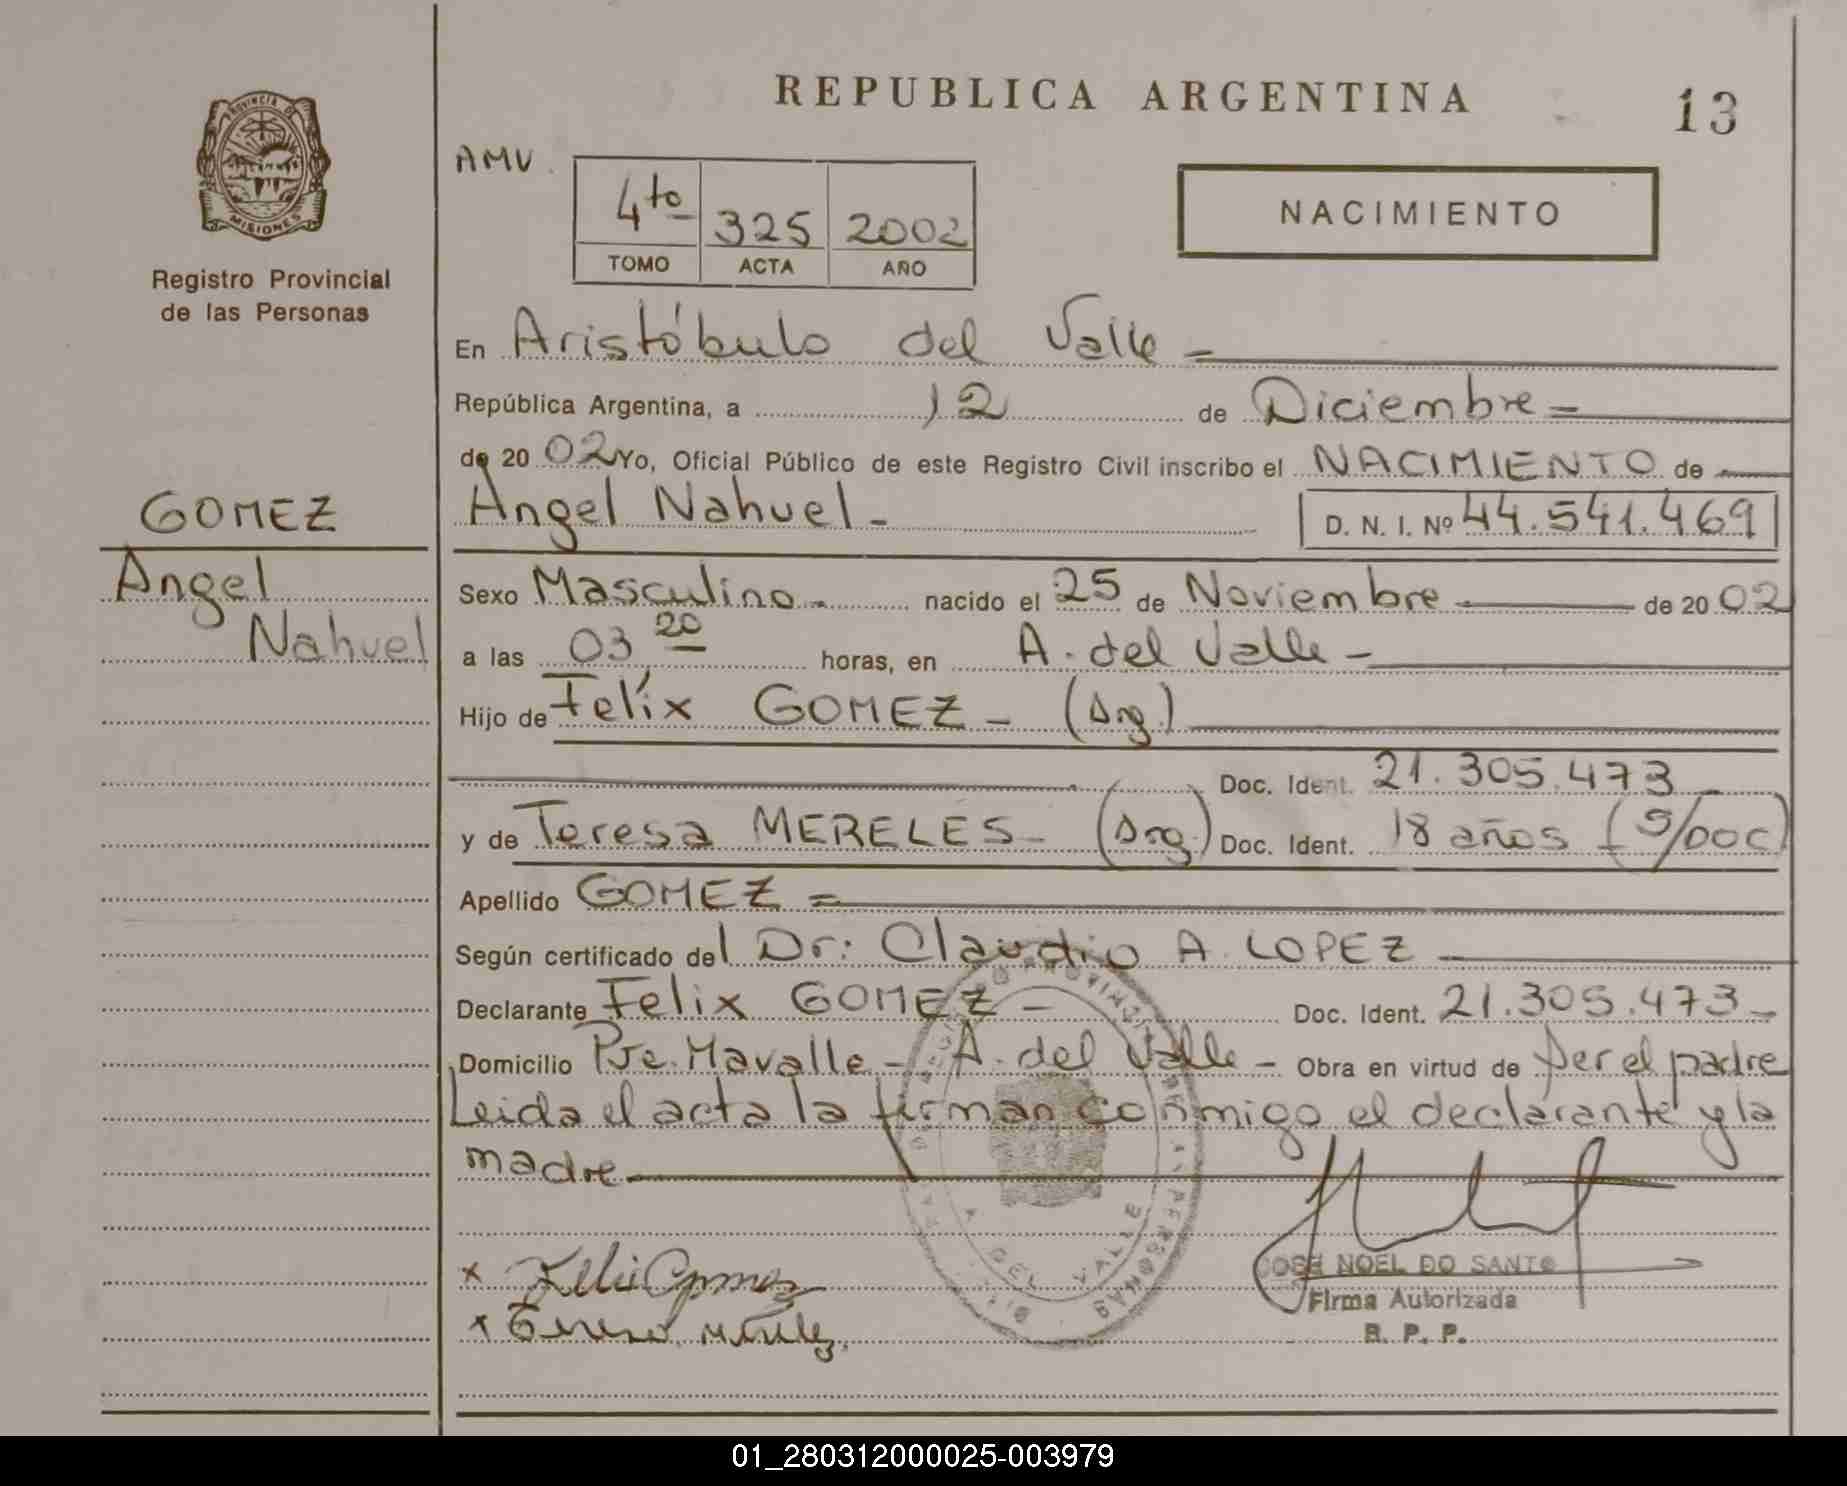 REPUBLICA ARGENTINA
13
PROVINCIA DE
MISIONES
Registro Provincial
de las Personas
AMV.
4to 325 2002
TOMO ACTA AÑO
NACIMIENTO
En Aristóbulo del Valle =
República Argentina, a 12 de Diciembre =
de 20 02 Yo, Oficial Público de este Registro Civil inscribo el NACIMIENTO de
GOMEZ
Angel
Nahuel
Angel Nahuel - D. N. I. Nº 44.541.469
Sexo Masculino - nacido el 25 de Noviembre de 20 02
a las 03,20 horas, en A. del Valle -
Hijo de Felíx GOMEZ - (Arg.)
Doc. Ident. 21.305.473
y de Teresa MERELES - (Arg.) Doc. Ident. 18 años (S/DOC)
Apellido GOMEZ =
Según certificado del Dr: Claudio A. LOPEZ
Declarante Felix GOMEZ - Doc. Ident. 21.305.473 -
Domicilio Pje. Mavalle - A. del Valle - Obra en virtud de ser el padre
Leida el acta la firman conmigo el declarante y la
madre
x Felix Gomez
x Teresa
JOSE NOEL DO SANTO
Firma Autorizada
R. P. P.
A. DEL VALLE
01_280312000025-003979